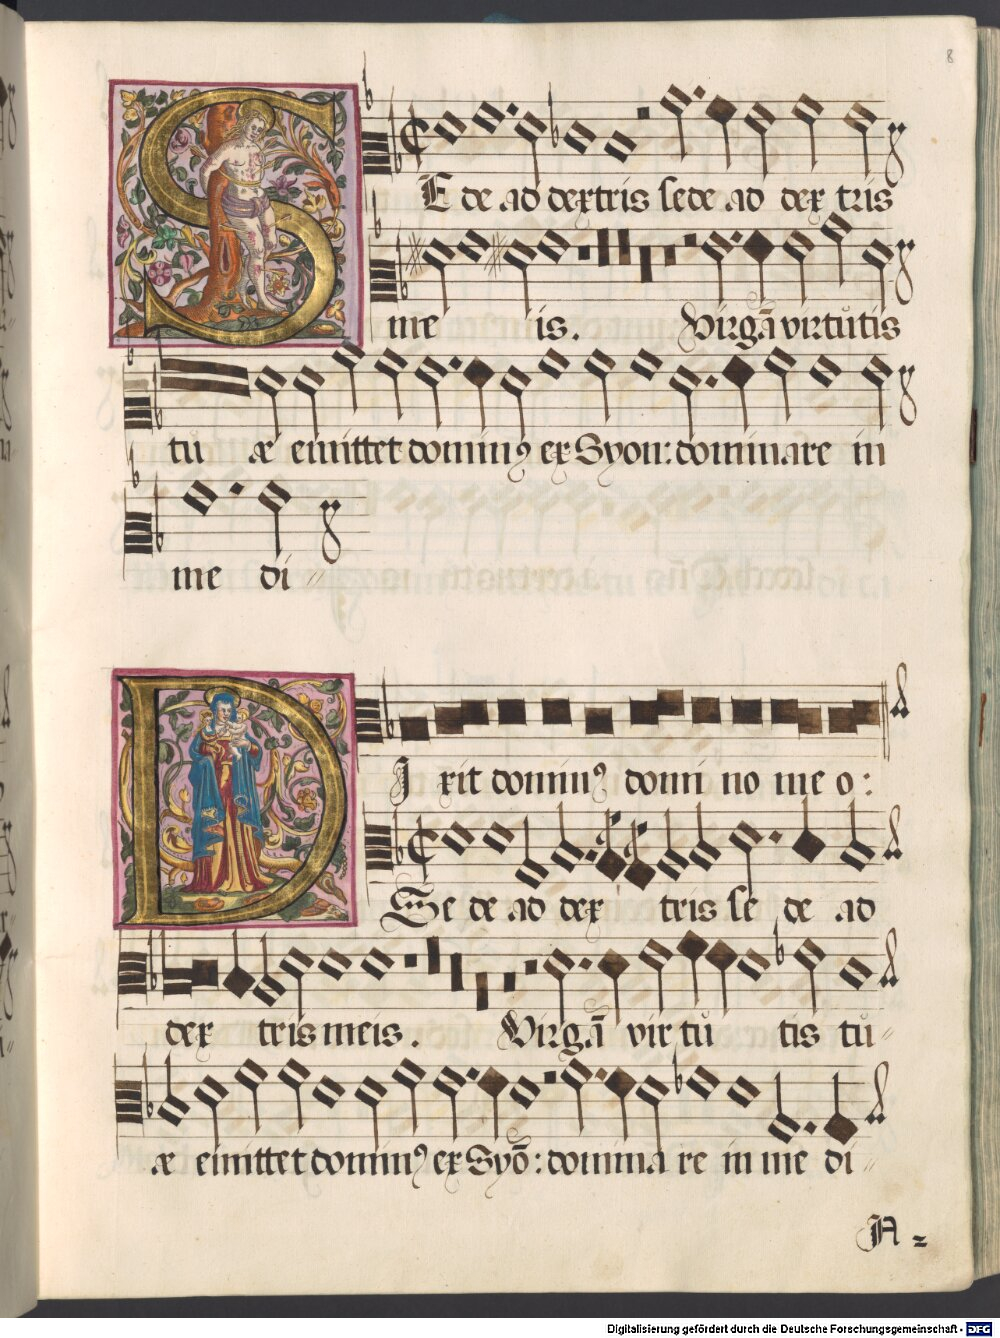 8
SEde ad dextris sede ad dex tris
me is. Virgā virtutis
tu æ emittet dominꝰ ex Syon: dominare in
me di〃
DIxit dominꝰ domi no me o:
Se de ad dex tris se de ad
dex tris meis. Virgā vir tu tis tu〃
æ emittet dominꝰ ex Syō: domina re in me di〃
A
Digitalisierung gefördert durch die Deutsche Forschungsgemeinschaft - DFG